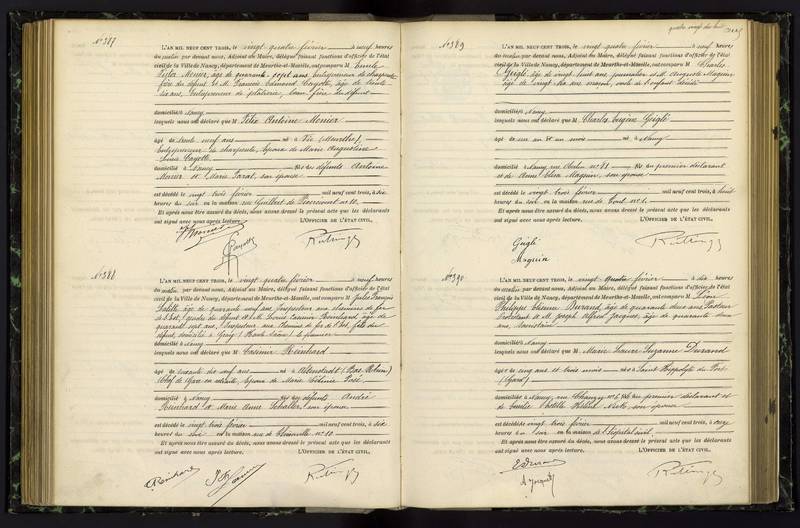 N° 387
L'AN MIL NEUF CENT TROIS, le vingt quatre février à neuf heures
du matin par devant nous, Adjoint au Maire, délégué faisant fonctions d'officier de l'état
civil de la Ville de Nancy, département de Meurthe-et-Moselle, ont comparu M Emile
Monier, âgé de quarante-sept ans, entrepreneur de charpente
frère du défunt et M. François Edmond Cayotte, âgé de trente
six ans, entrepreneur de plâtrerie, beau frère du défunt
domiciliés à Nancy
lesquels nous ont déclaré que M Félix Antoine Monier
âgé de trente neuf ans né à Vic (Meurthe)
entrepreneur de charpente, époux de Marie Augustine
Cayotte
domicilié à Nancy fils des défunts Antoine
Monier et Marie Laral, son épouse
est décédé le vingt trois février mil neuf cent trois, à six
heures du soir en la maison rue Guilbert de Pixérécourt n° 10.
Et après nous être assuré du décès, nous avons dressé le présent acte que les déclarants
ont signé avec nous après lecture. L'OFFICIER DE L'ÉTAT CIVIL,
Cayotte
N° 388
L'AN MIL NEUF CENT TROIS, le vingt quatre février à neuf heures
du matin par devant nous, Adjoint au Maire, délégué faisant fonctions d'officier de l'état
civil de la Ville de Nancy, département de Meurthe-et-Moselle, ont comparu M Jules François
âgé de quarante neuf ans, Inspecteur aux chemins de fer
de l'Est, gendre du défunt et M. Louis Casimir Reinhard, âgé de
quarante sept ans, Inspecteur aux Chemins de fer de l'Est, fils du
défunt, domicilié à Gray (Haute Saône) le premier
domicilié à Nancy
lesquels nous ont déclaré que M Casimir Reinhard
âgé de soixante dix neuf ans né à Altenstadt (Bas-Rhin)
Chef de Gare en retraite, époux de Marie
domicilié à Nancy fils des défunts André
Reinhard et Marie Anne Schaller, son épouse
est décédé le vingt trois février mil neuf cent trois, à six
heures du soir en la maison rue de Thionville n° 10
Et après nous être assuré du décès, nous avons dressé le présent acte que les déclarants
ont signé avec nous après lecture. L'OFFICIER DE L'ÉTAT CIVIL,
Reinhard
quatre vingt dix huit
N° 389
L'AN MIL NEUF CENT TROIS, le vingt quatre février à neuf heures
du matin par devant nous, Adjoint au Maire, délégué faisant fonctions d'officier de l'état
civil de la Ville de Nancy, département de Meurthe-et-Moselle, ont comparu M Charles
Geiglé, âgé de vingt huit ans, journalier et M. Auguste Maguin
âgé de vingt six ans, maçon, oncle de l'enfant décédé
domiciliés à Nancy
lesquels nous ont déclaré que M Charles Eugène Geiglé
âgé de un an et un mois né à Nancy
domicilié à Nancy, rue n° 81 fils du premier déclarant
et de Anne Maguin, son épouse
est décédé le vingt trois février mil neuf cent trois, à huit
heures du soir en la maison rue de Toul n° 1.
Et après nous être assuré du décès, nous avons dressé le présent acte que les déclarants
ont signé avec nous après lecture. L'OFFICIER DE L'ÉTAT CIVIL,
Geiglé
Maguin
N° 390
L'AN MIL NEUF CENT TROIS, le vingt quatre février à dix heures
du matin par devant nous, Adjoint au Maire, délégué faisant fonctions d'officier de l'état
civil de la Ville de Nancy, département de Meurthe-et-Moselle, ont comparu M Léon
Philippe Etienne Durand, âgé de quarante deux ans, Pasteur
Protestant et M. Joseph Alfred Jacques, âgé de quarante deux
ans, Sacristain
domiciliés à Nancy
lesquels nous ont déclaré que M Marie Laure Suzanne Durand
âgée de cinq ans et trois mois née à Saint Hippolyte du Fort
(Gard)
domiciliée à Nancy, rue Chanzy n° 6 fille du premier déclarant et
de Emilie son épouse
est décédée le vingt trois février mil neuf cent trois, à onze
heures du soir en la maison de l'hôpital civil.
Et après nous être assuré du décès, nous avons dressé le présent acte que les déclarants
ont signé avec nous après lecture. L'OFFICIER DE L'ÉTAT CIVIL,
Durand
A Jacques